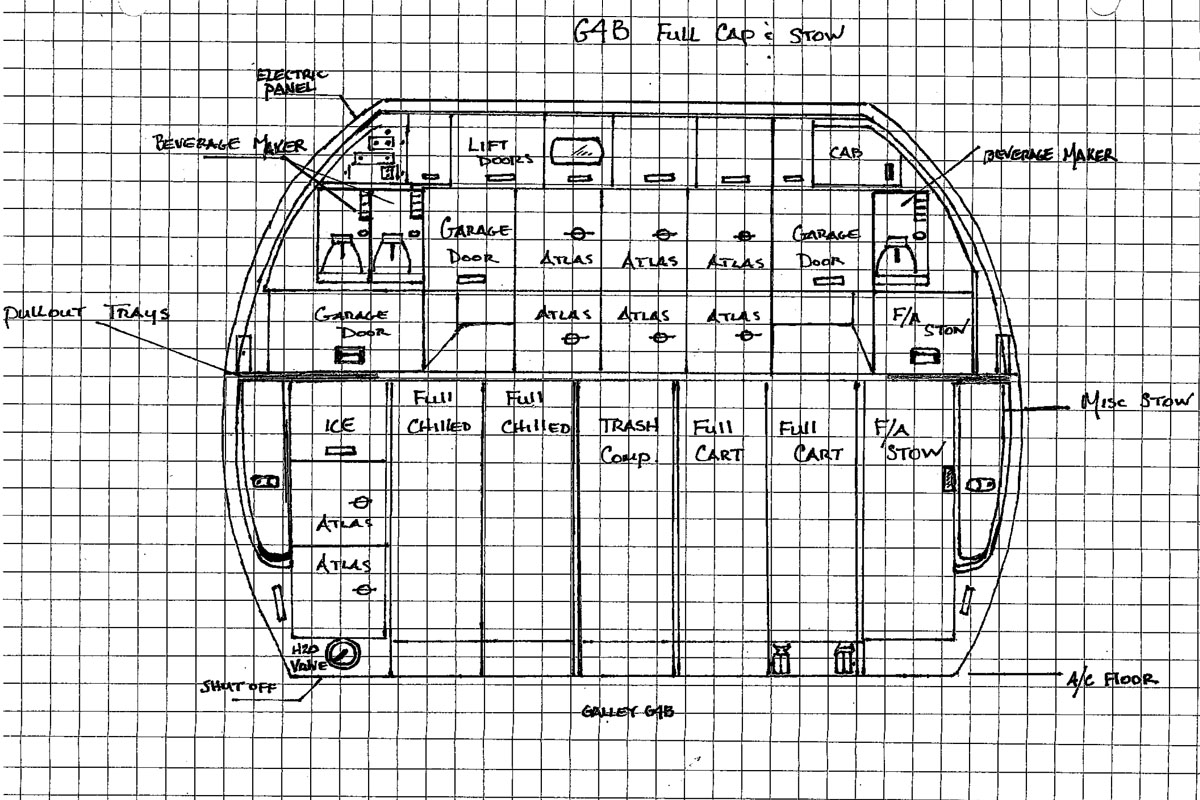 G4B Full Cap & STOW
ELECTRIC
PANEL
BEVERAGE MAKER
LIFT
DOORS
CAB
BEVERAGE MAKER
GARAGE
DOOR
ATLAS
ATLAS
ATLAS
GARAGE
DOOR
PULLOUT TRAYS
GARAGE
DOOR
ATLAS
ATLAS
ATLAS
F/A
STOW
MISC STOW
ICE
Full
CHILLED
Full
CHILLED
TRASH
Comp.
Full
CART
Full
CART
F/A
STOW
ATLAS
ATLAS
H2O
VALVE
SHUT OFF
A/C FLOOR
GALLEY G4B